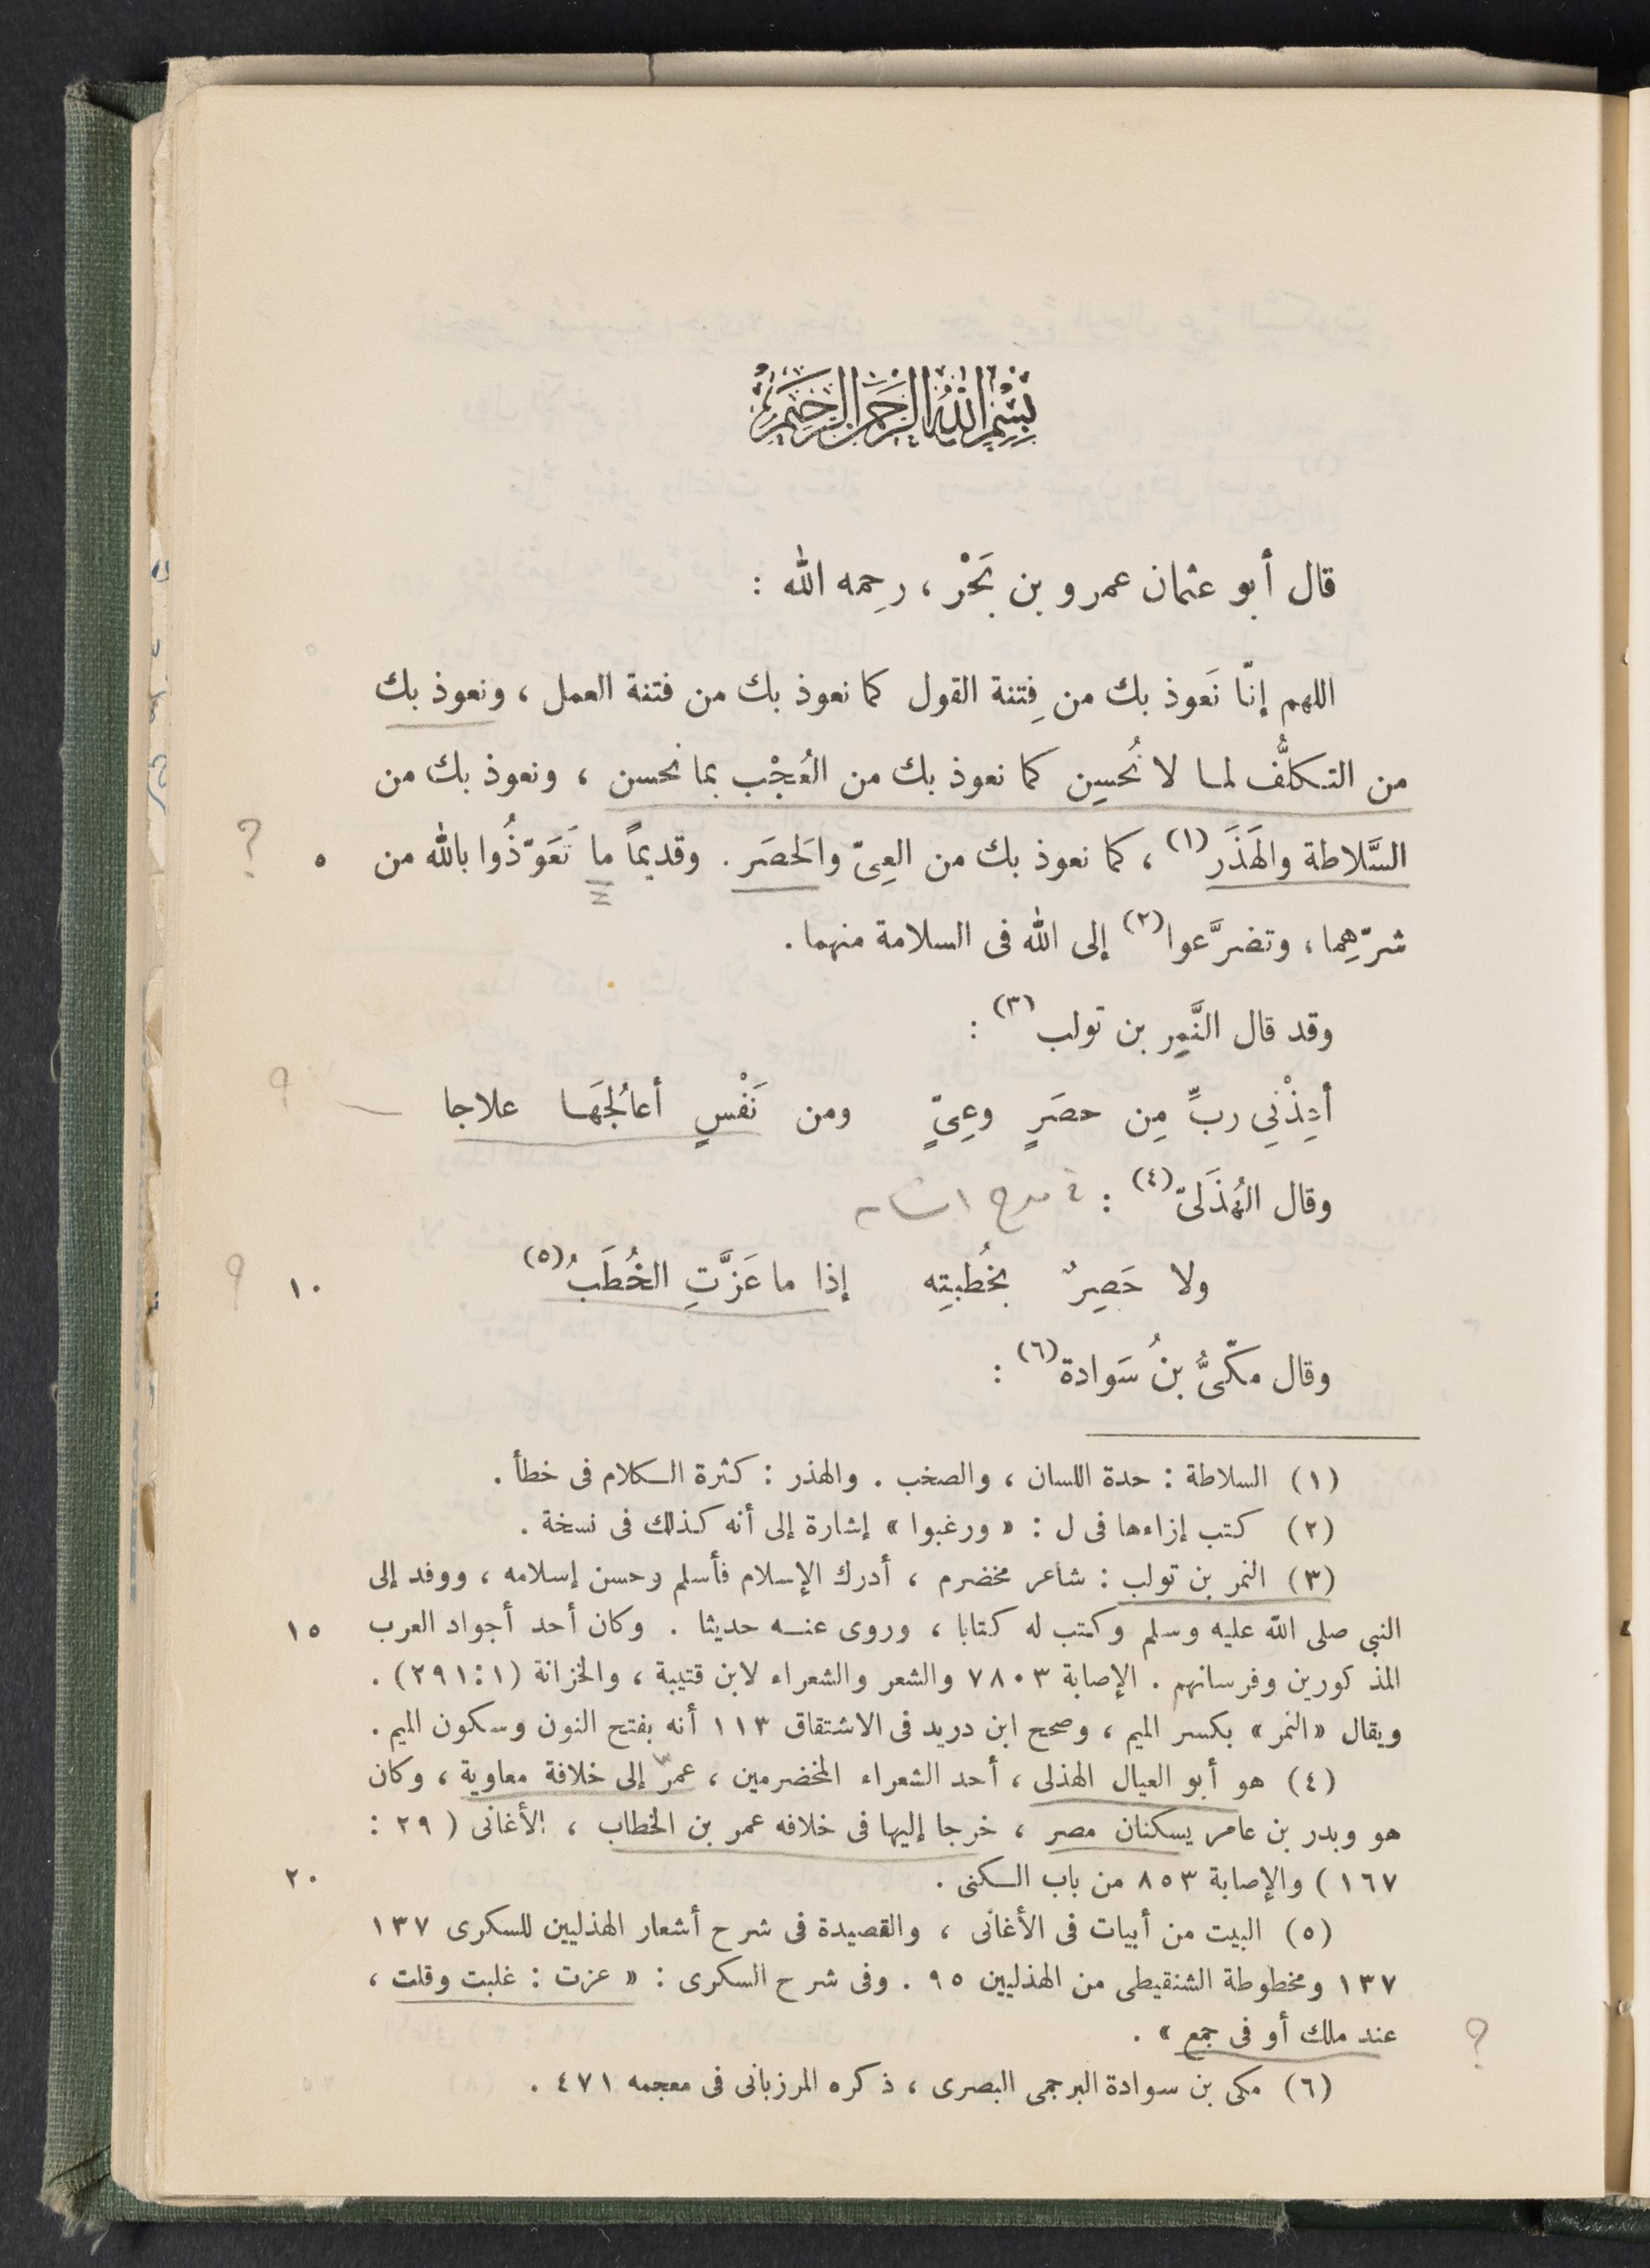 بسم الله الرحمن الرحيم
قال أبو عثمان عمرو بن بَحْر ، رحِمه الله :
اللهم إنّا نَعوذ بك من فِتنة القول كما نعوذ بك من فتنة العمل ، ونعوذ بك
من التكلُّف لما لا نُحسِن كما نعوذ بك من العُجْب بما نحسن ، ونعوذ بك من
؟
السَّلاطة والهَذَر (١) ، كما نعوذ بك من العِىّ والحَصَر . وقديماً ما تَعَوّذُوا بالله من ٥
شرّهِما ، وتضرَّعوا (٢) إلى الله فى السلامة منهما .
وقد قال النَّمِر بن تولب (٣) :
أعِذْنِي ربِّ مِن حصَرٍ وعِىٍّ ومن نَفْسٍ أعالجُهَا علاجا
؟
وقال الهُذَلىّ (٤) :
ولا حَصِرٌ بخُطبتِه إذا ما عَزَّتِ الخُطَبُ (٥) ١٠
؟
وقال مكّىُّ بنُ سَوادة (٦) :
(١) السلاطة : حدة اللسان ، والصخب . والهذر : كثرة الكلام فى خطأ .
(٢) كتب إزاءها فى ل : « ورغبوا » إشارة إلى أنه كذلك فى نسخة .
(٣) النمر بن تولب : شاعر مخضرم ، أدرك الإسلام فأسلم وحسن إسلامه ، ووفد إلى
النبي صلى الله عليه وسلم وكتب له كتابا ، وروى عنه حديثا . وكان أحد أجواد العرب ١٥
المذكورين وفرسانهم . الإصابة ٧٨٠٣ والشعر والشعراء لابن قتيبة ، والخزانة (١ : ٢٩١) .
ويقال « النمر » بكسر الميم ، وصحح ابن دريد فى الاشتقاق ١١٣ أنه بفتح النون وسكون الميم .
(٤) هو أبو العيال الهذلى ، أحد الشعراء المخضرمين ، عمر إلى خلافة معاوية ، وكان
هو وبدر بن عامر يسكنان مصر ، خرجا إليها فى خلافه عمر بن الخطاب ، الأغانى ( ٢٩ :
١٦٧ ) والإصابة ٨٥٣ من باب الكنى . ٢٠
(٥) البيت من أبيات فى الأغانى ، والقصيدة فى شرح أشعار الهذليين للسكرى ١٣٧
١٣٧ ومخطوطة الشنقيطى من الهذليين ٩٥ . وفى شرح السكرى : « عزت : غلبت وقلت ،
عند ملك أو فى جمع » .
؟
(٦) مكى بن سوادة البرجمى البصرى ، ذكره المرزبانى فى معجمه ٤٧١ .